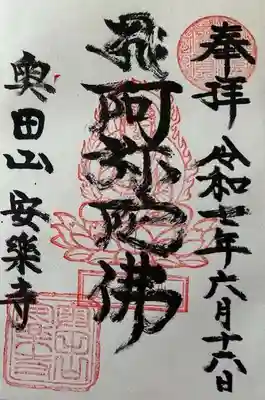 奉拝 令和七年六月十六日
飛阿弥陀佛
奥田山 安樂寺